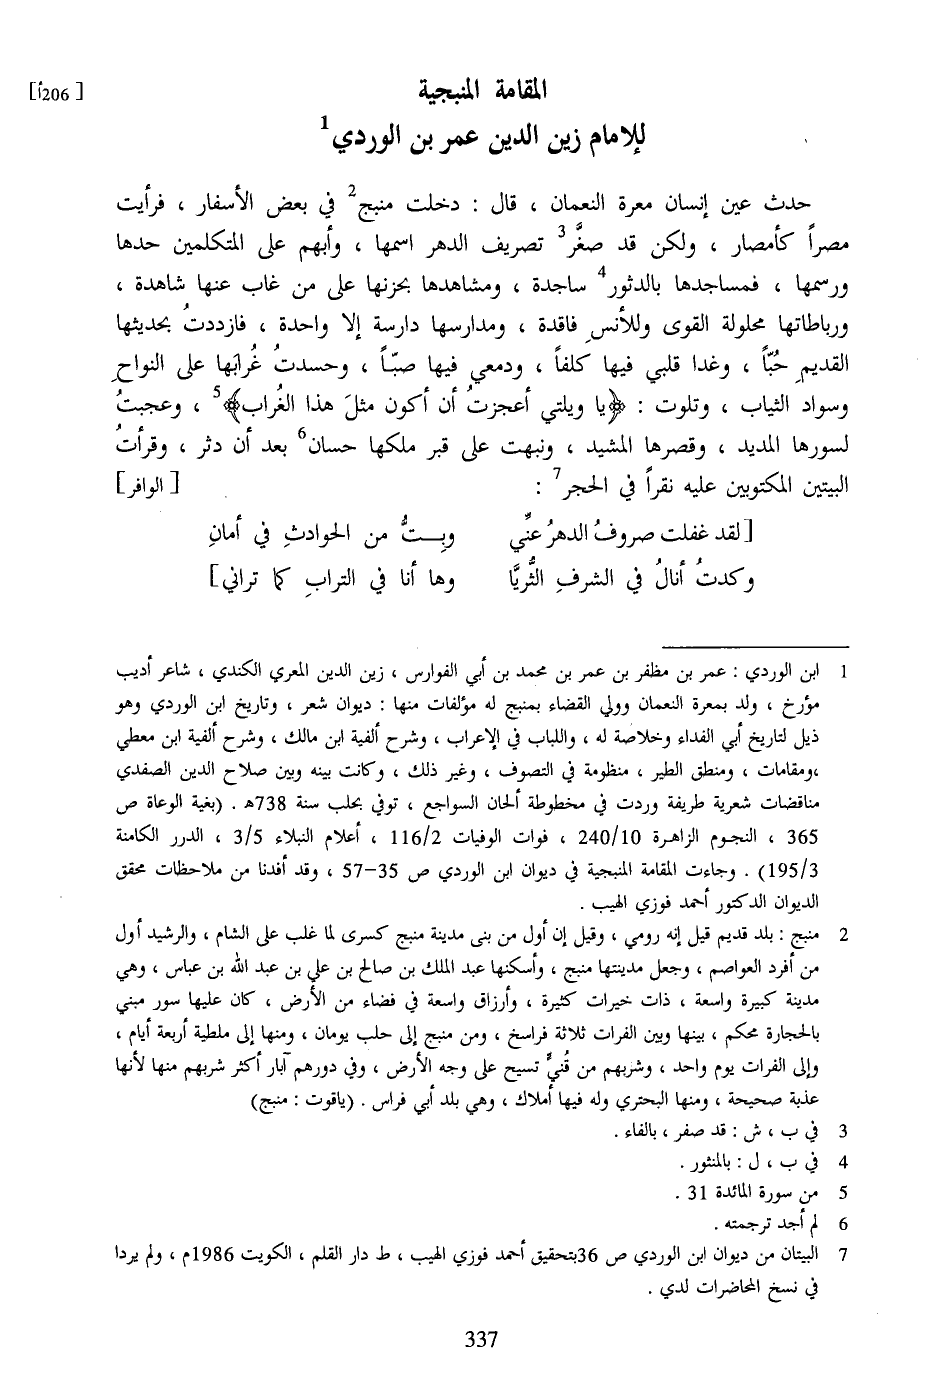 [ 206أ]
المقامة المنبجية
للإمام زين الدين عمر بن الوردي1
حدث عين إنسان معرة النعمان ، قال : دخلت منبج2 في بعض الأسفار ، فرأيت
مصراً كأمصار ، ولكن قد صغَّر3 تصريف الدهر اسمها ، وأبهم على المتكلمين حدها
ورسمها ، فمساجدها بالدثور4 ساجدة ، ومشاهدها بحزنها على من غاب عنها شاهدة ،
ورباطاتها محلولة القوى وللأنسِ فاقدة ، ومدارسها دارسة إلا واحدة ، فازددتُ بحديثها
القديمِ حُبّاً ، وغدا قلبي فيها كلفاً ، ودمعي فيها صبّاً ، وحسدتُ غُرابَها على النواحِ
وسواد الثياب ، وتلوت : ﴿يا ويلتي أعجزتُ أن أكون مثلَ هذا الغُراب﴾5 ، وعجبتُ
لسورها المديد ، وقصرها المشيد ، ونبهت على قبر ملكها حسان6 بعد أن دثر ، وقرأتُ
البيتين المكتوبين عليه نقراً في الحجر7 : [ الوافر]
[ لقد غفلت صروفُ الدهرُ عنِّي وبِــتُّ من الحوادثِ في أمانِ
وكدتُ أنالُ في الشرفِ الثُّريَّا وها أنا في الترابِ كما تراني]
1 ابن الوردي : عمر بن مظفر بن عمر بن محمد بن أبي الفوارس ، زين الدين المعري الكندي ، شاعر أديب
مؤرخ ، ولد بمعرة النعمان وولي القضاء بمنبج له مؤلفات منها : ديوان شعر ، وتاريخ ابن الوردي وهو
ذيل لتاريخ أبي الفداء وخلاصة له ، واللباب في الإعراب ، وشرح ألفية ابن مالك ، وشرح ألفية ابن معطي
،ومقامات ، ومنطق الطير ، منظومة في التصوف ، وغير ذلك ، وكانت بينه وبين صلاح الدين الصفدي
مناقضات شعرية طريفة وردت في مخطوطة ألحان السواجع ، توفي بحلب سنة 738هـ . (بغية الوعاة ص
365 ، النجوم الزاهرة 240/10 ، فوات الوفيات 116/2 ، أعلام النبلاء 3/5 ، الدرر الكامنة
195/3) . وجاءت المقامة المنبجية في ديوان ابن الوردي ص 35-57 ، وقد أفدنا من ملاحظات محقق
الديوان الدكتور أحمد فوزي الهيب .
2 منبج : بلد قديم قيل إنه رومي ، وقيل إن أول من بنى مدينة منبج كسرى لما غلب على الشام ، والرشيد أول
من أفرد العواصم ، وجعل مدينتها منبج ، وأسكنها عبد الملك بن صالح بن علي بن عبد الله بن عباس ، وهي
مدينة كبيرة واسعة ، ذات خيرات كثيرة ، وأرزاق واسعة في فضاء من الأرض ، كان عليها سور مبني
بالحجارة محكم ، بينها وبين الفرات ثلاثة فراسخ ، ومن منبج إلى حلب يومان ، ومنها إلى ملطية أربعة أيام ،
وإلى الفرات يوم واحد ، وشربهم من قُنيٍّ تسيح على وجه الأرض ، وفي دورهم آبار أكثر شربهم منها لأنها
عذبة صحيحة ، ومنها البحتري وله فيها أملاك ، وهي بلد أبي فراس . (ياقوت : منبج)
3 في ب ، ش : قد صفر ، بالفاء .
4 في ب ، ل : بالمنثور .
5 من سورة المائدة 31 .
6 لم أجد ترجمته .
7 البيتان من ديوان ابن الوردي ص 36بتحقيق أحمد فوزي الهيب ، ط دار القلم ، الكويت 1986م ، ولم يردا
في نسخ المحاضرات لدي .
337